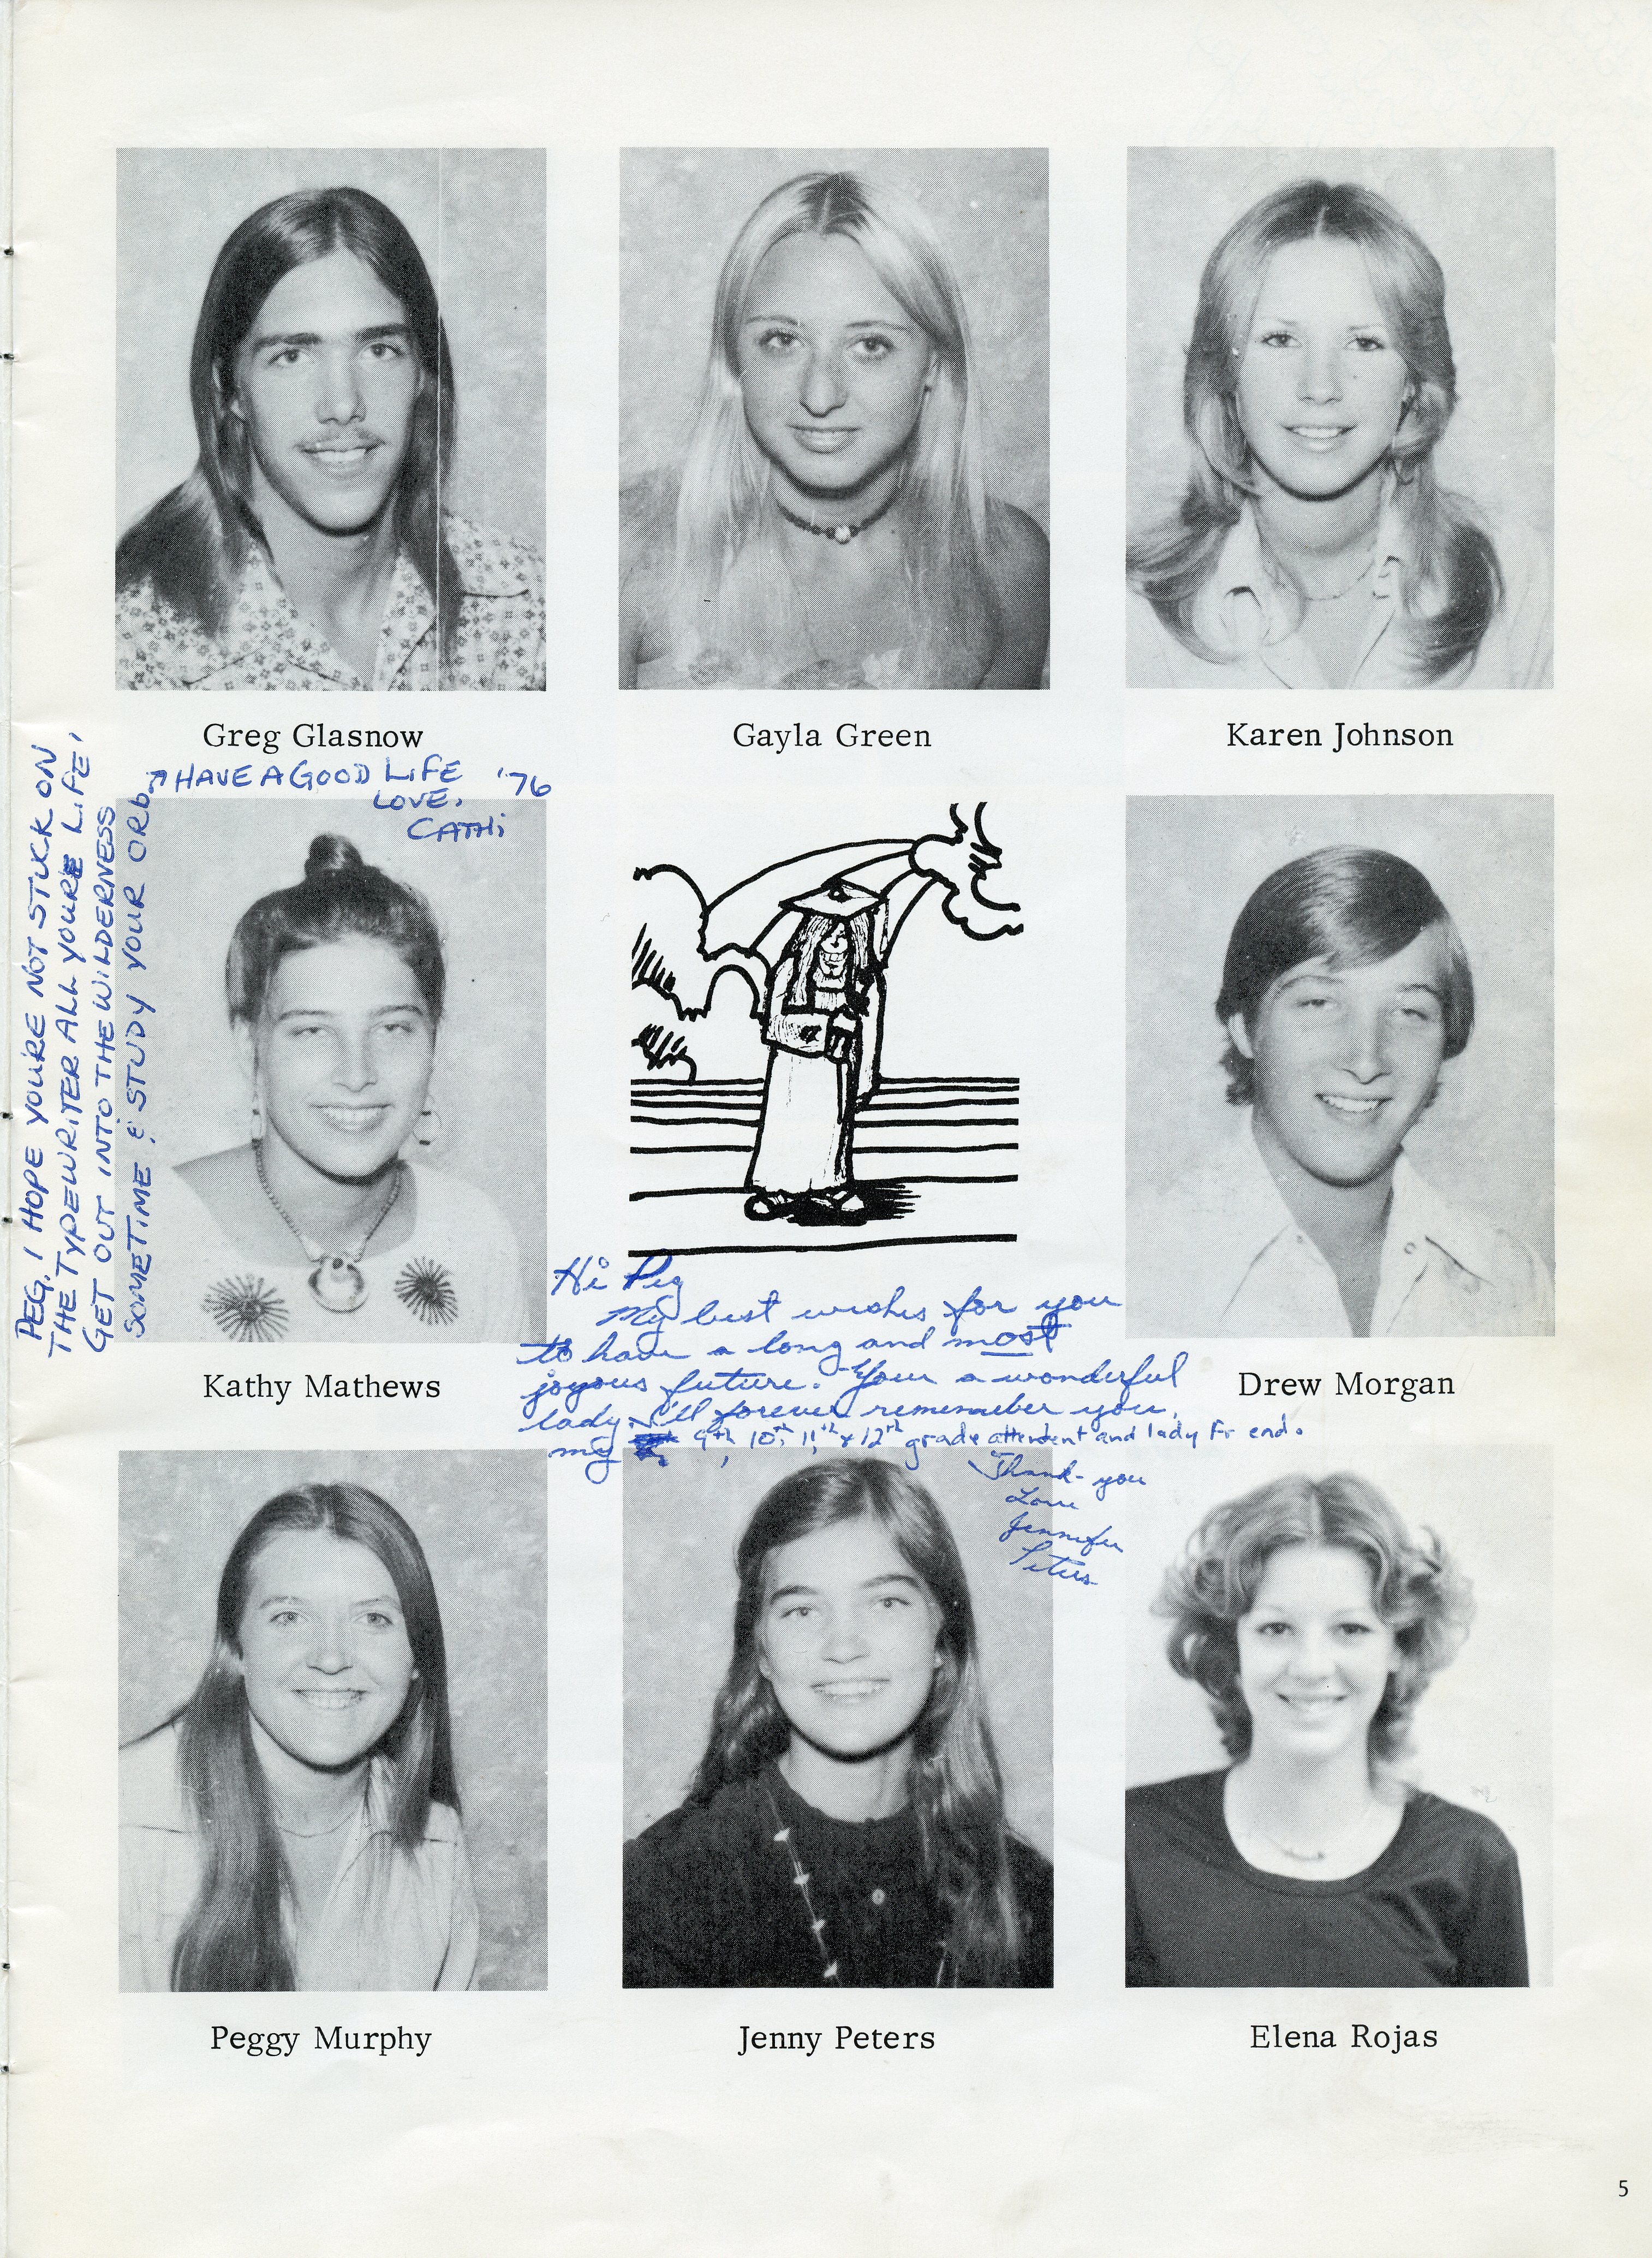 Greg Glasnow
Gayla Green
Karen Johnson
PEG, I HOPE YOU'RE NOT STUCK ON
THE TYPEWRITER ALL YOURE LIFE,
GET OUT INTO THE WILDERNESS
SOMETIME & STUDY YOUR ORB.
HAVE A GOOD LIFE '76
LOVE,
CATHi
Kathy Mathews
Hi Peg
My best wishes for you
to have a long and most
joyous future. Your a wonderful
lady. I'll forever remember you,
my 9th, 10th, 11th & 12th grade attendent and lady Friend.
Thank-you
Love
Jennifer
Peters
Drew Morgan
Peggy Murphy
Jenny Peters
Elena Rojas
5